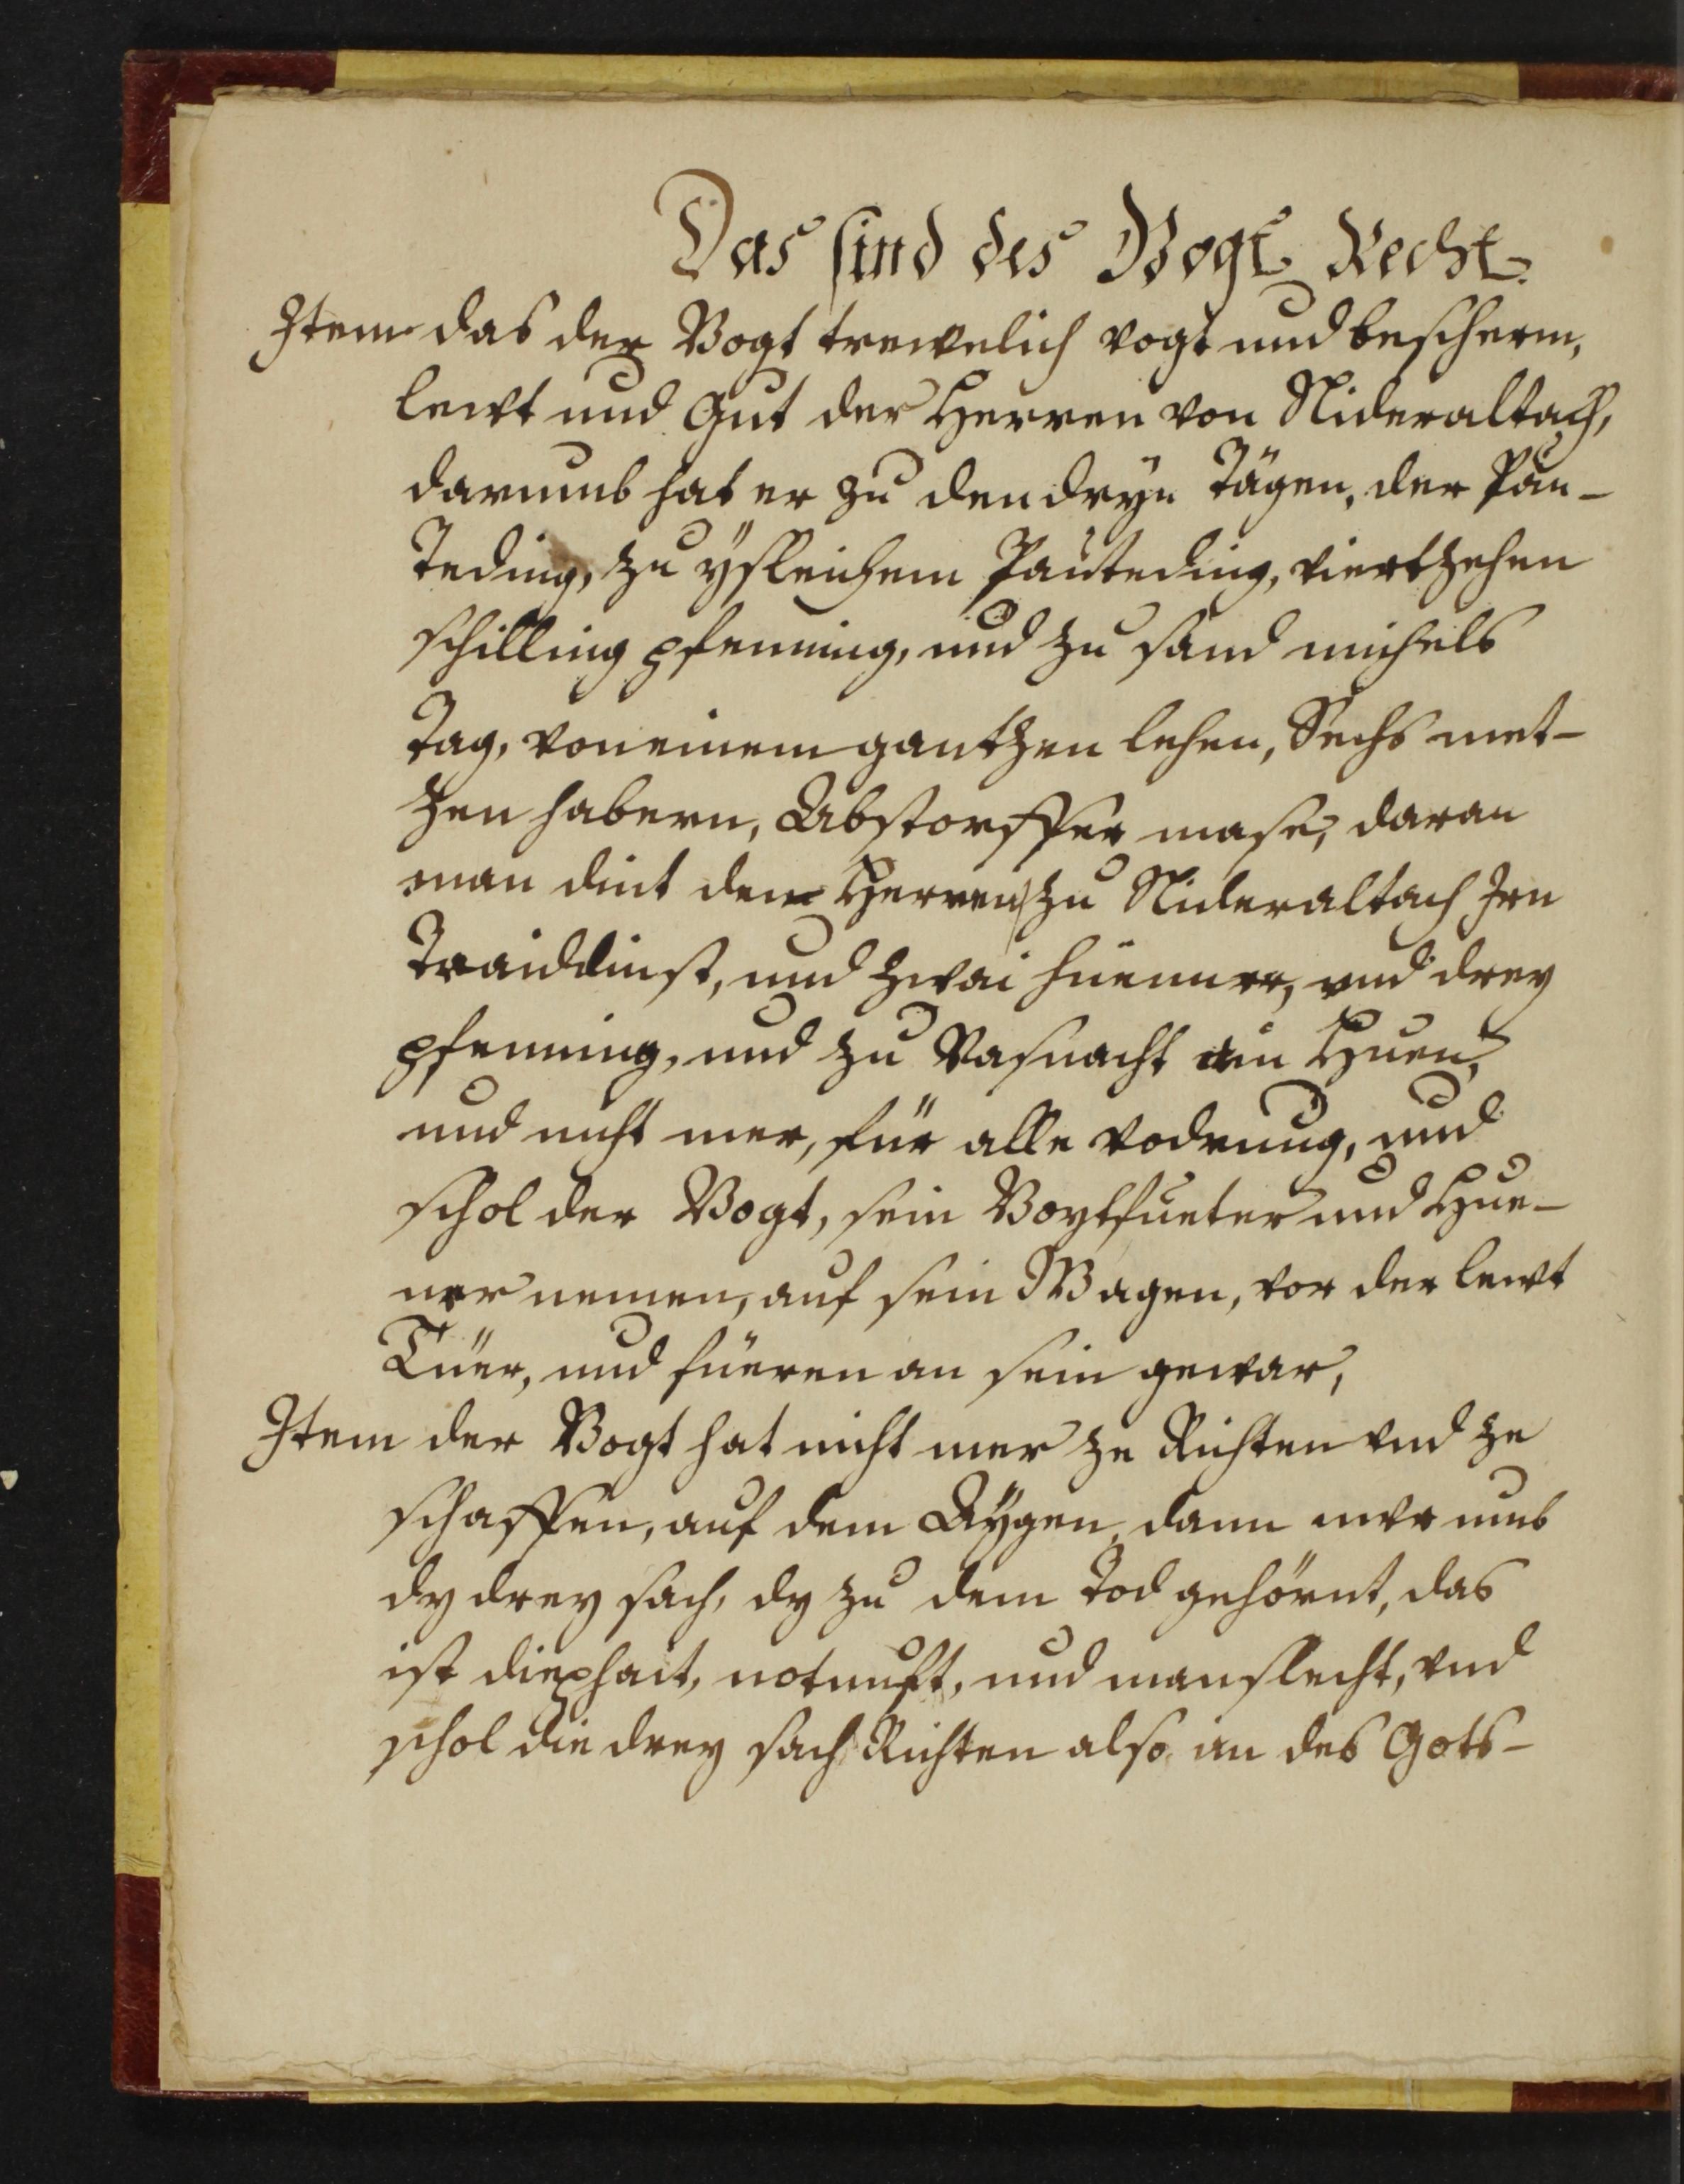 Das sind des Vogt Recht.
Item das der Vogt trewelich vogt und bescherm,
lewt und Gut der Herren von Nideraltach,
darumb hat er zu den dryn Tägen, der Pan-
Teding, zu ÿsleichem Panteding, viertzehen
schilling pfenning, und zu sand michels
Tag, von einem gantzen lehen, Sechs met-
zen habern, Abstorffer mase, daran
man dint dem Herren zu Nideraltach Irn
Traiddinst, und zwai hüenner, vnd drey
pfenning, und zu Vasnacht ain Huen,
und nicht mer, für alle vodrung, und
schol der Vogt, sein Voytfueter und Hue-
ner nemen, auf sein Wagen, vor der lewt
Tüer, und füeren an sein gewar,
Item der Vogt hat nicht mer ze Richten vnd ze
schaffen, auf dem Aÿgen, dann mer umb
dy drey sach, dy zu dem Tod gehörnt, das
ist diephait, notnuft, und manslecht, vnd
schol die drey sach Richten also in des Gots-